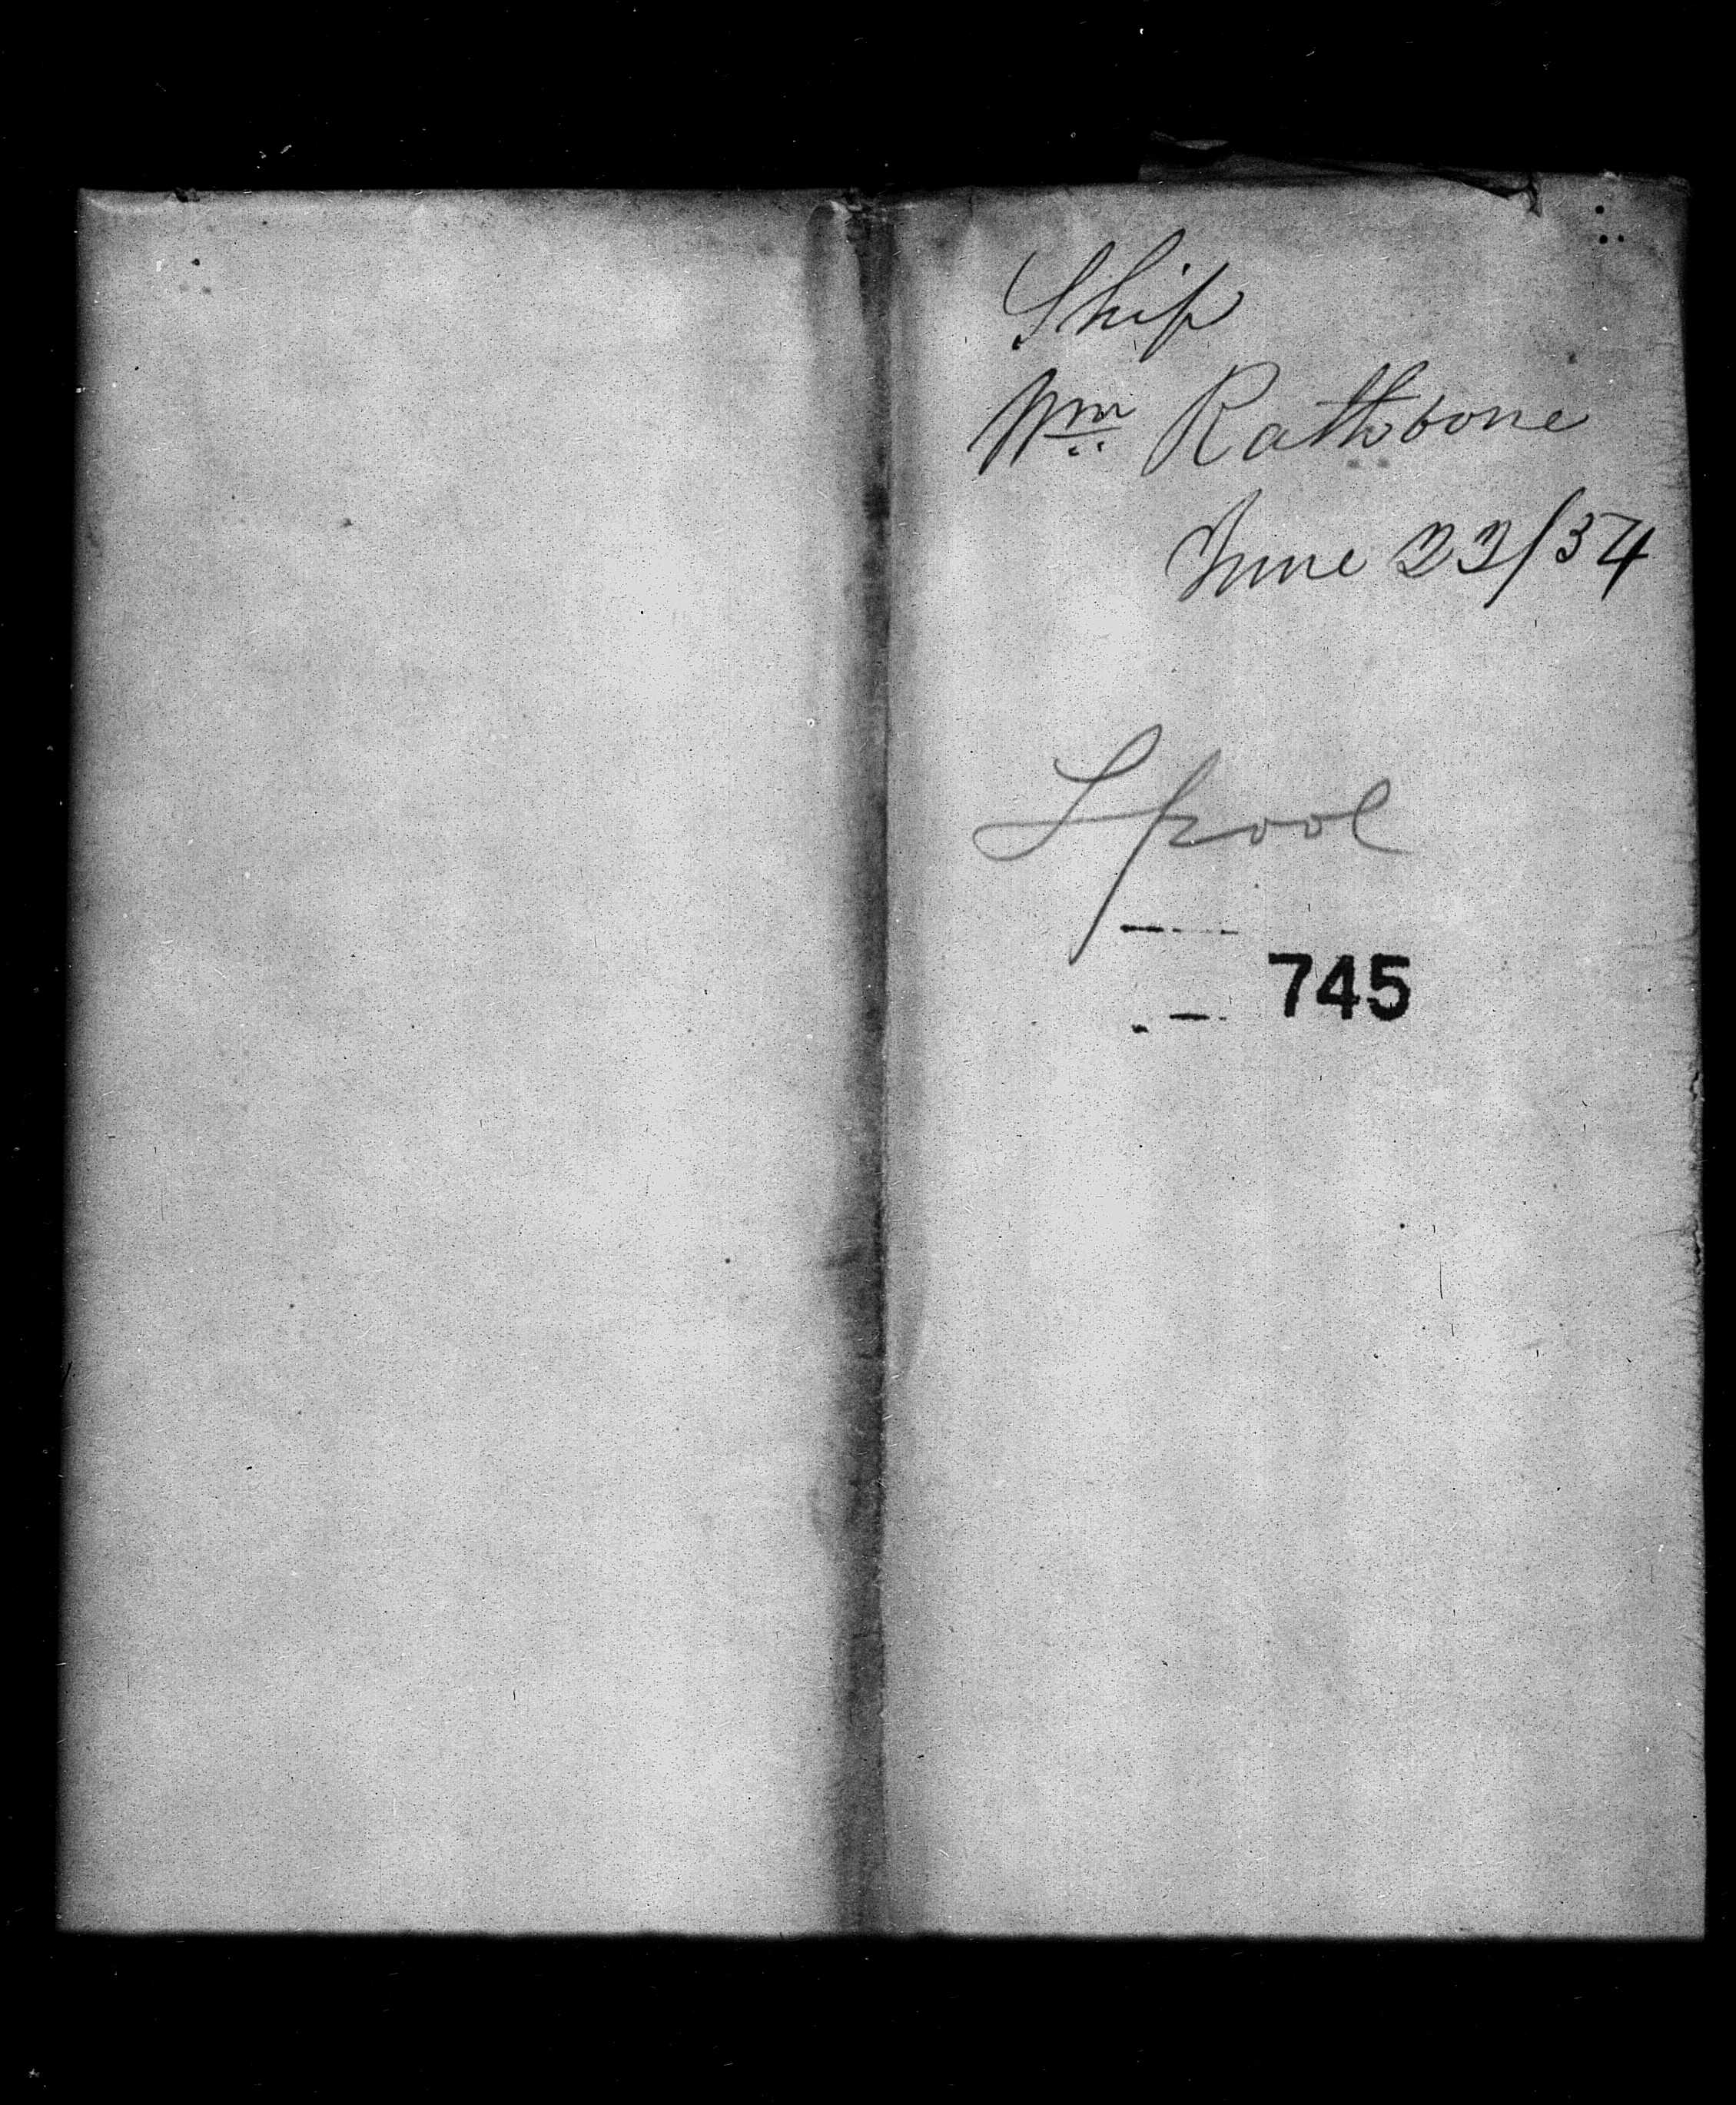 Ship
Wm Rathbone
June 22/54
Lpool
745